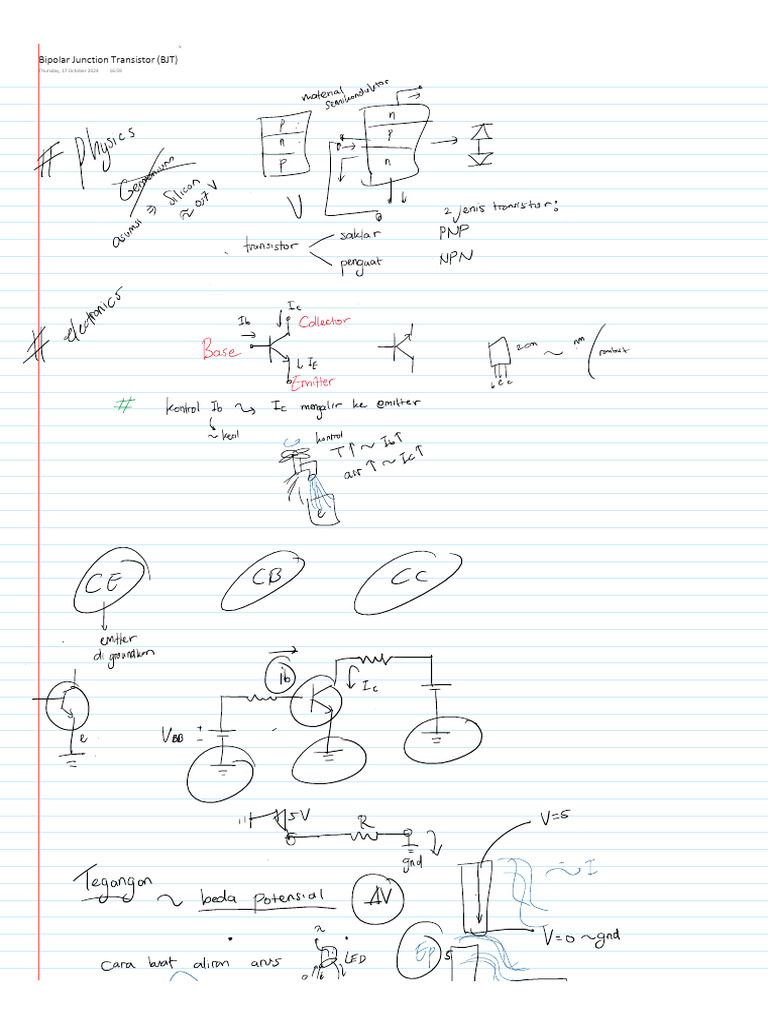 Bipolar Junction Transistor (BJT)
Thursday, 17 October 2024 16:50
# Physics
Germanium
asumsi => Silicon
≈ 0,7 V
material
semikonduktor
p
n
p
n
p
n
V
transistor
saklar
penguat
2 jenis transistor:
PNP
NPN
# electronics
Ib
Ic
Collector
Base
IE
Emitter
2 cm ~ nm
# kontrol Ib ~> Ic mengalir ke emitter
~ kecil
kontrol
T↑ ~ Ib↑
air↑ ~ Ic↑
e
CE
CB
CC
emitter
di groundkan
e
ib
Ic
VBB
+
-
5V
R
gnd
V=5
~ I
V=0 ~ gnd
Tegangan ~ beda potensial ΔV
EP
5
Cara buat aliran arus
LED